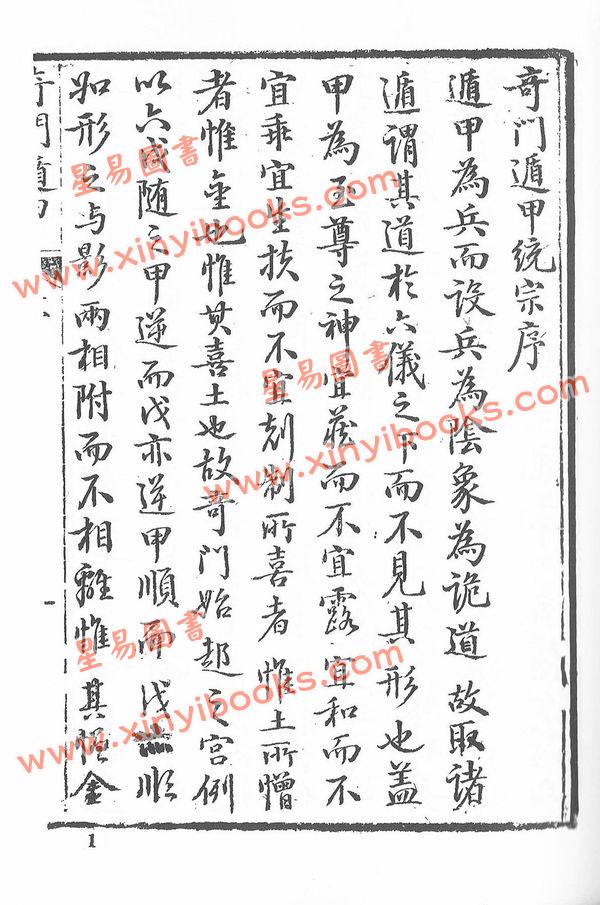 奇門遁甲統宗序
遁甲為兵而設兵為陰象為詭道故取諸
遁謂其道於六儀之下而不見其形也盖
甲為至尊之神宜藏而不宜露宜和而不
宜乖宜生扶而不宜剋制所喜者惟土所憎
者惟金也惟其喜土也故奇門始起之宮例
以六戊随之甲逆而戊亦逆甲順而戊亦順
如形之与影兩相附而不相離惟其憎金
奇門遁甲
1
星易圖書
www.xinyibooks.com
星易圖書
www.xinyibooks.com
星易圖書
www.xinyibooks.com